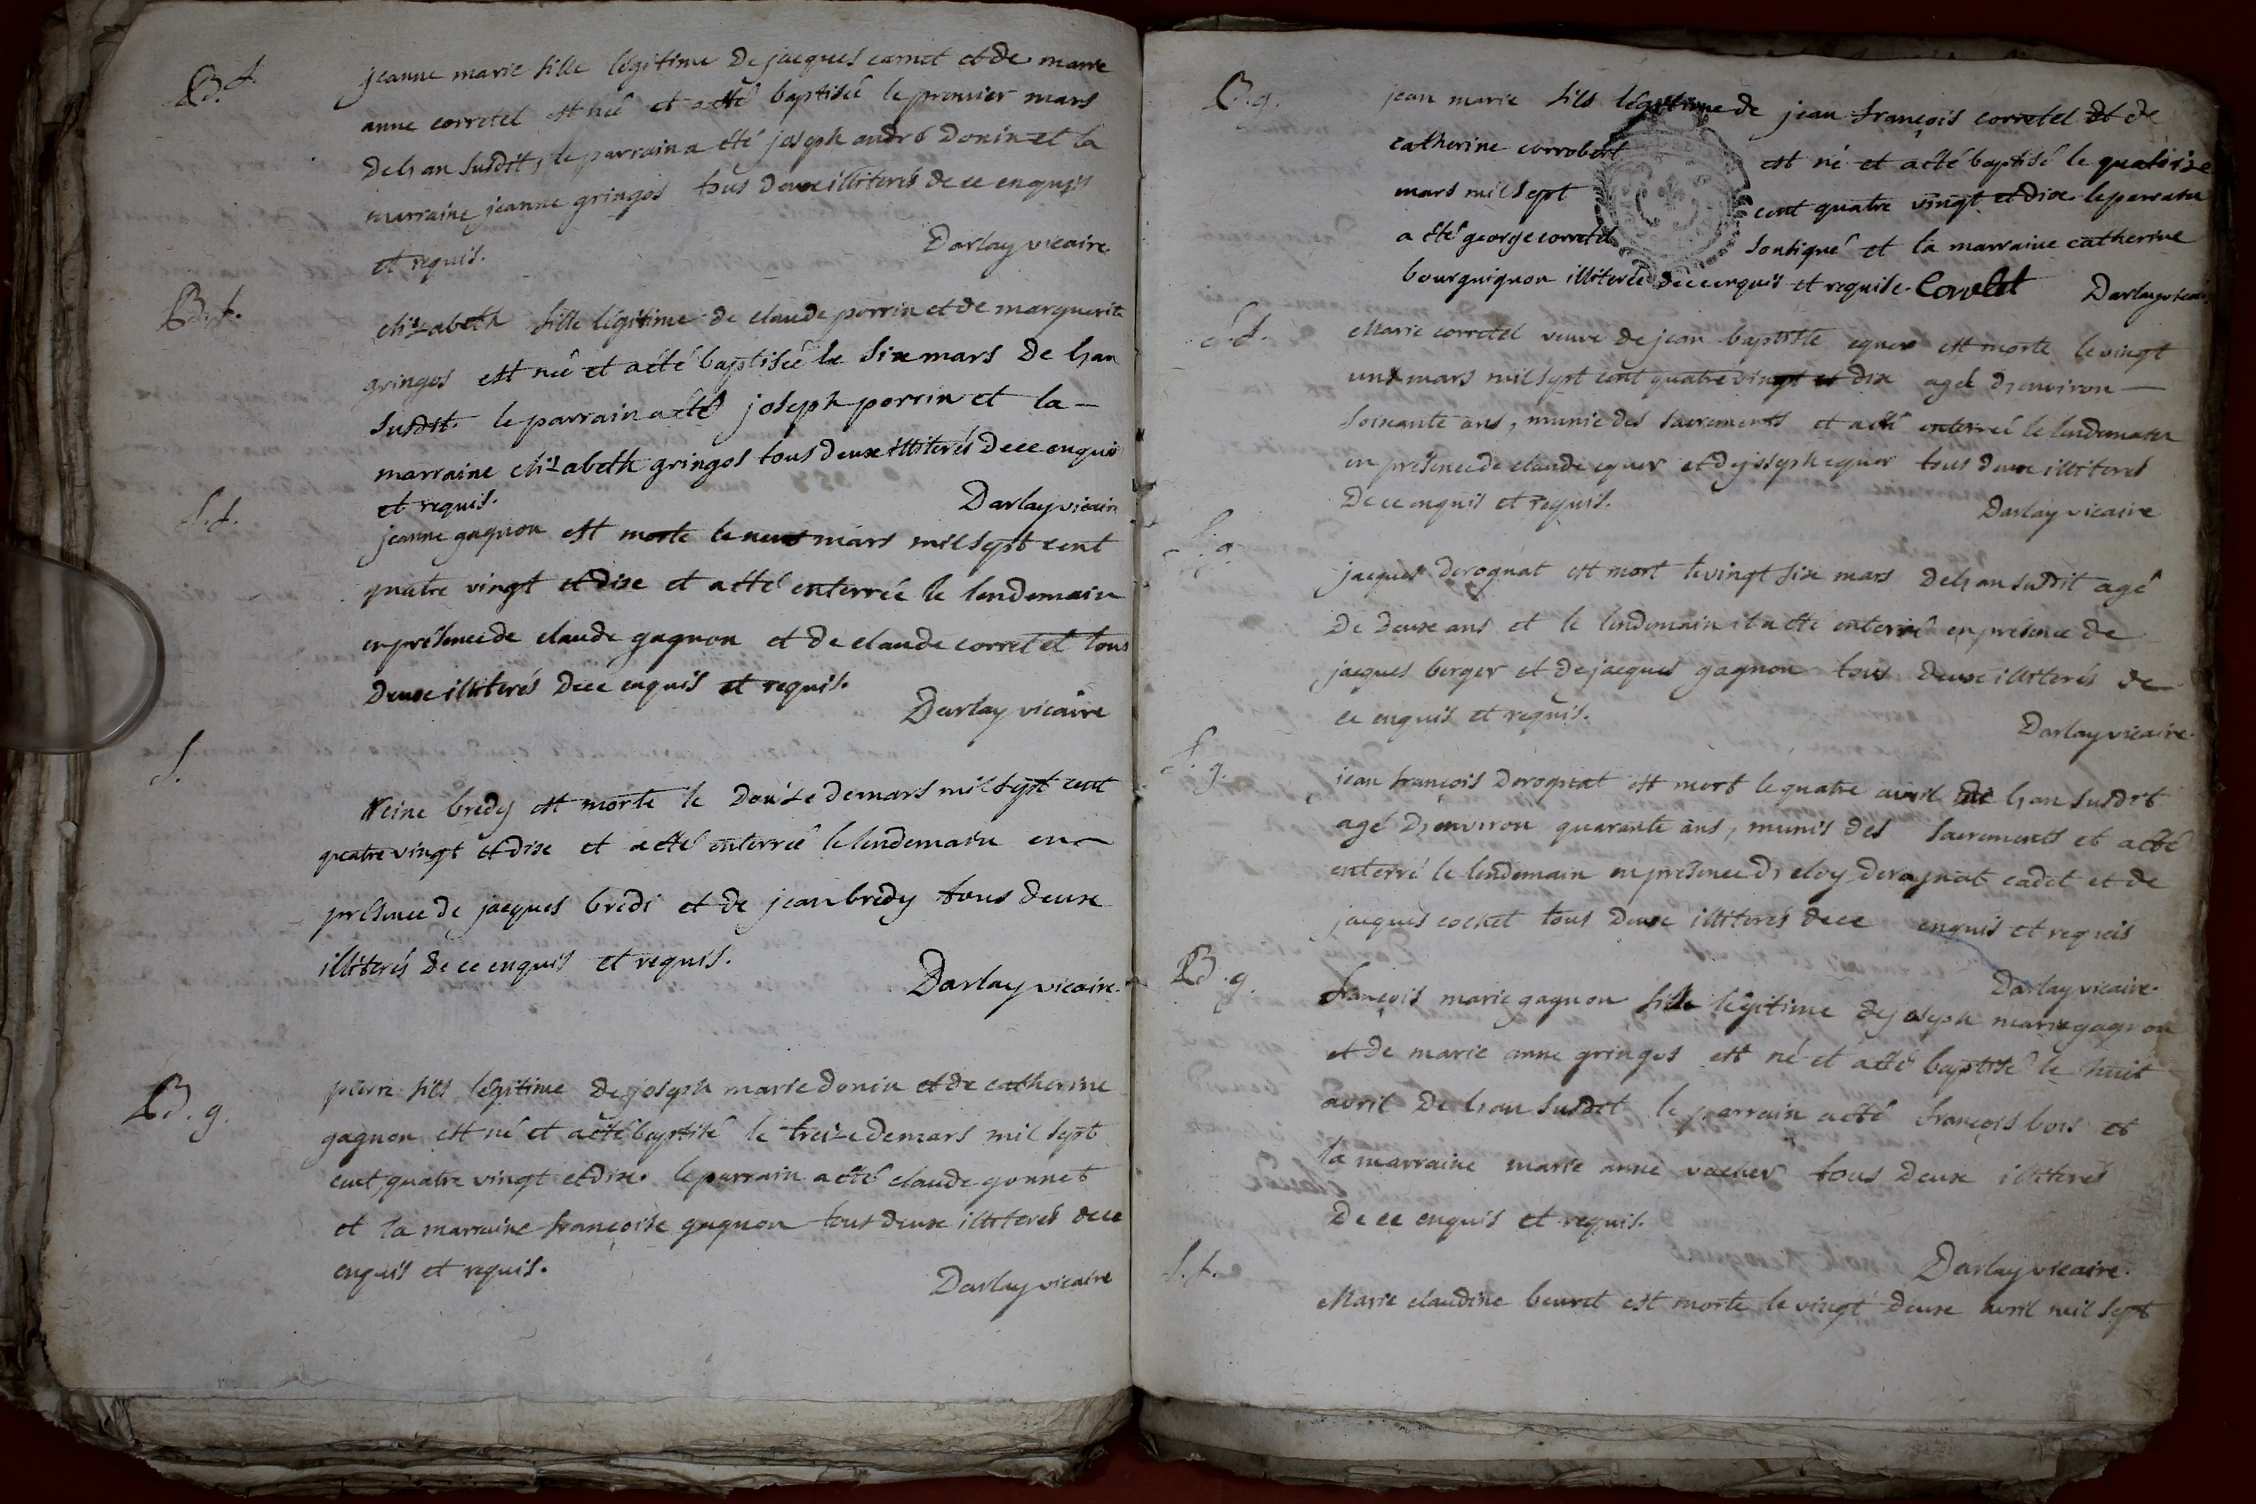 B. f.
jeanne marie fille légitime de jacques carret et de marie
anne corretel est née et a été baptisée le premier mars
de l'an susdit, le parrain a été joseph andré donin et la
marraine jeanne gringos tous deux illiterés de ce enquis
et requis.
Darlay vicaire
B. f.
elizabeth fille légitime de claude perrin et de marguerite
gringos est née et a été baptisée le six mars de l'an
susdit. le parrain a été joseph perrin et la
marraine elizabeth gringos tous deux illiterés de ce enquis
et requis.
Darlay vicaire
S. f.
jeanne gagnon est morte le neuf mars mil sept cent
quatre vingt et dix et a été enterrée le lendemain
en présence de claude gagnon et de claude corretel tous
deux illiterés de ce enquis et requis.
Darlay vicaire
S.
Reine bredy est morte le douze de mars mil sept cent
quatre vingt et dix et a été enterrée le lendemain en
présence de jacques bredi et de jean bredy tous deux
illiterés de ce enquis et requis.
Darlay vicaire.
B. g.
pierre fils légitime de joseph marie donin et de catherine
gagnon est né et a été baptisé le treize de mars mil sept
cent quatre vingt et dix. le parrain a été claude gonnet
et la marraine françoise gagnon tous deux illiterés de ce
enquis et requis.
Darlay vicaire
B. g.
jean marie fils légitime de jean françois corretel et de
catherine corrobert est né et a été baptisé le quatorze
mars mil sept cent quatre vingt et dix le parrain
a été george corretel sousigné et la marraine catherine
bourguignon illiterée de ce enquis et requise. Corretel Darlay vicaire
S. f.
Marie corretel veuve de jean baptiste equer est morte le vingt
un mars mil sept cent quatre vingt et dix agée d'environ
soixante ans, munie des sacrements et a été enterrée le lendemain
en présence de claude equer et de joseph equer tous deux illiterés
de ce enquis et requis.
Darlay vicaire
S. g.
jacques derognat est mort le vingt six mars de l'an susdit agé
de deux ans et le lendemain il a été enterré en présence de
jacques berger et de jacques gagnon tous deux illiterés de
ce enquis et requis.
Darlay vicaire.
S. g.
jean françois derognat est mort le quatre avril de l'an susdit
agé d'environ quarante ans, munis des sacrements et a été
enterré le lendemain en présence d'eloy derognat cadet et de
jacques cochet tous deux illiterés de ce enquis et requis
Darlay vicaire.
B. g.
françois marie gagnon fils légitime de joseph marie gagnon
et de marie anne gringos est né et a été baptisé le huit
avril de l'an susdit le parrain a été françois bois et
la marraine marie anne vacher tous deux illiterés
de ce enquis et requis.
Darlay vicaire.
S. f.
Marie claudine beuret est morte le vingt deux avril mil sept